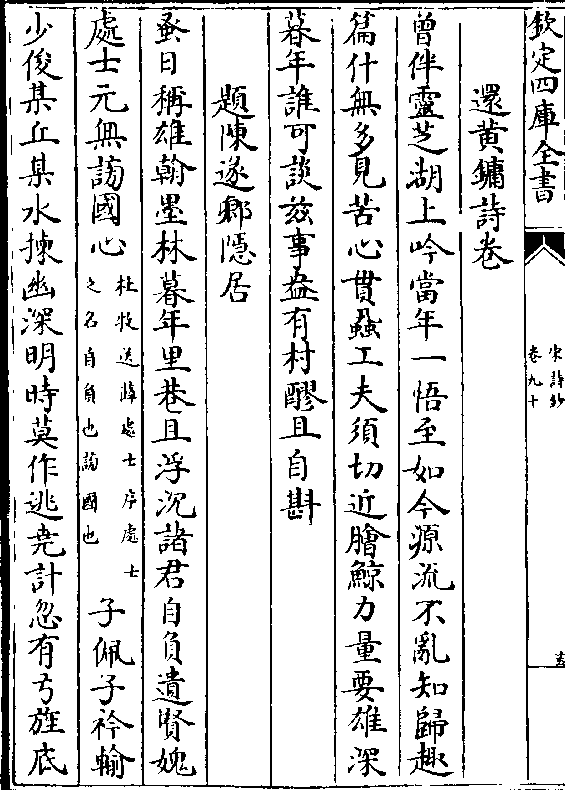 欽定四庫全書
宋詩鈔
卷九十
還黃鏞詩卷
曾伴靈芝湖上吟當年一悟至如今源流不亂知歸趣
篇什無多見苦心貫蝨工夫須切近膾鯨力量要雄深
暮年誰可談兹事盎有村醪且自斟
題陳遂卿隱居
蚤日稱雄翰墨林暮年里巷且浮沉諸君自負遺賢媿
處士元無謗國心
杜牧送薛處士序處士
之名自負也謗國也
子佩子衿輸
少俊某丘某水揀幽深明時莫作逃堯計忽有弓旌底